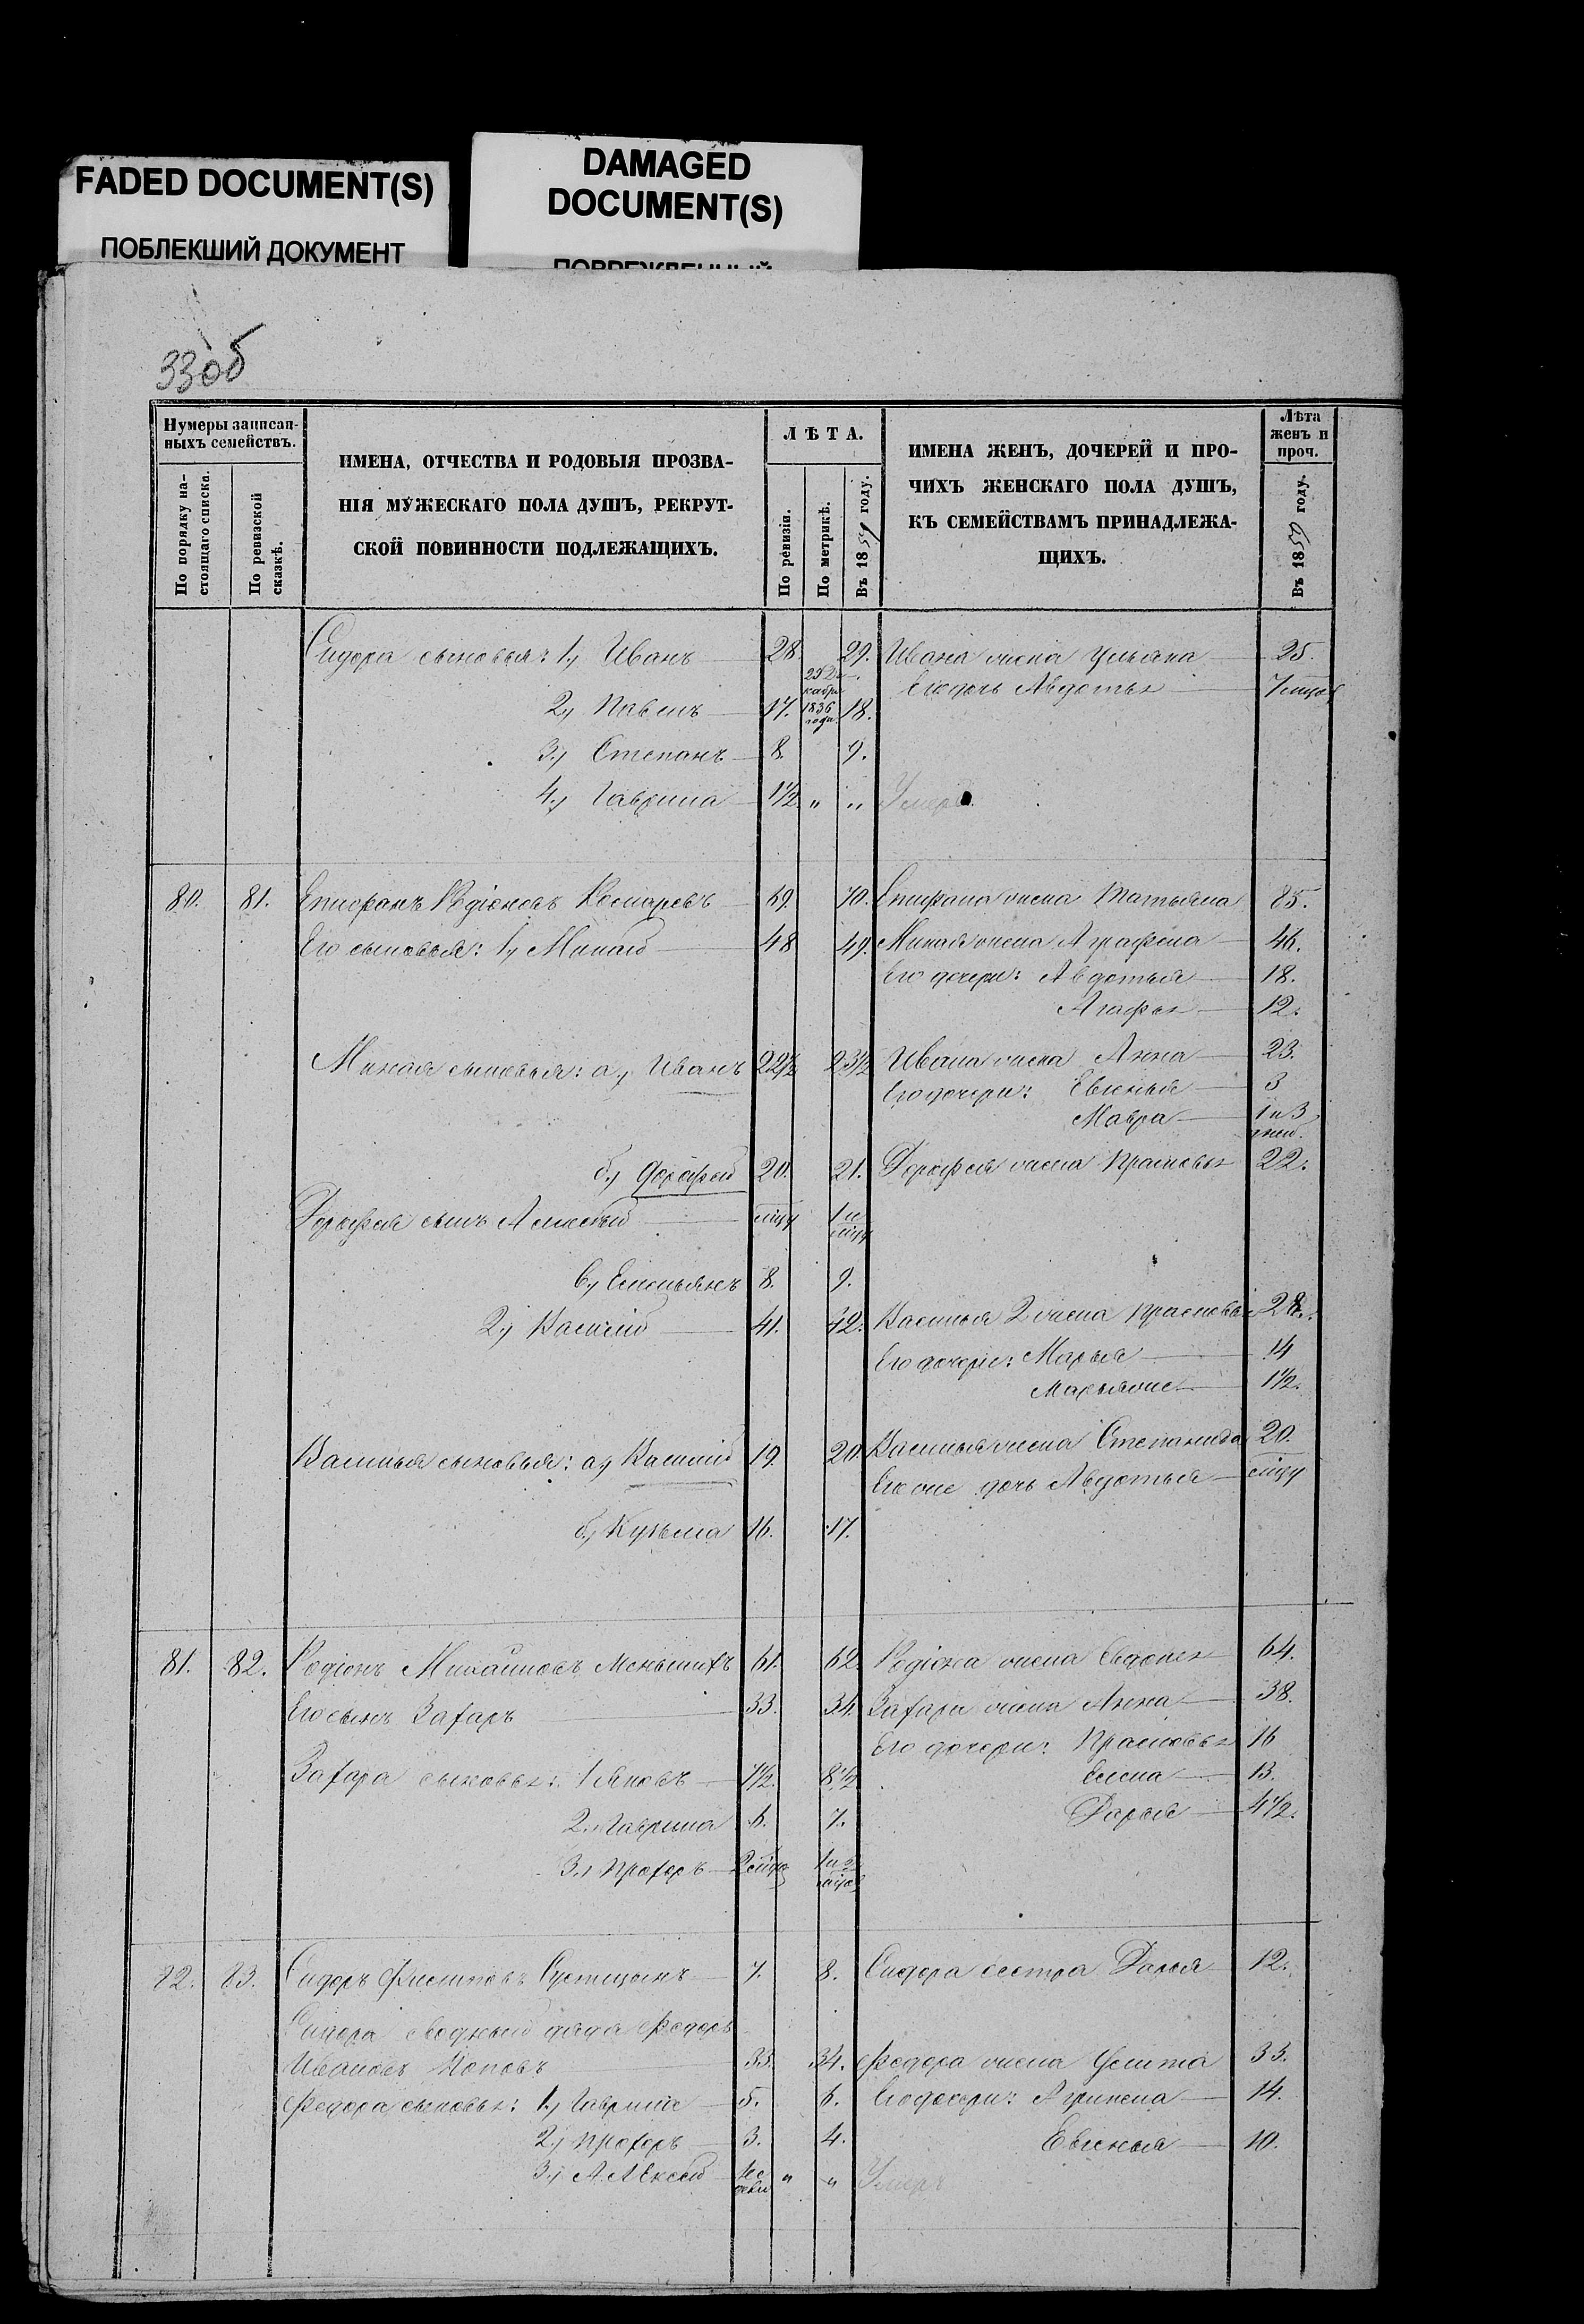 FADED DOCUMENT(S)
ПОБЛЕКШИЙ ДОКУМЕНТ
DAMAGED
DOCUMENT(S)
ПОВРЕЖДЕННЫЙ
33об
Нумеры записан-
ныхъ семействъ.
По порядку на-
стоящаго списка.
По ревизской
сказкѣ.
ИМЕНА, ОТЧЕСТВА И РОДОВЫЯ ПРОЗВА-
НІЯ МУЖЕСКАГО ПОЛА ДУШЪ, РЕКРУТ-
СКОЙ ПОВИННОСТИ ПОДЛЕЖАЩИХЪ.
ЛѢТА.
По ревизіи.
По метрикѣ.
Въ 18 году.
ИМЕНА ЖЕНЪ, ДОЧЕРЕЙ И ПРО-
ЧИХЪ ЖЕНСКАГО ПОЛА ДУШЪ,
КЪ СЕМЕЙСТВАМЪ ПРИНАДЛЕЖА-
ЩИХЪ.
Лѣта
женъ и
проч.
Въ 18 году.
Сидора сыновья: 1, Иванъ 28. 29. Ивана жена Ульяна 25.
Его дочь Авдотья
2, Павелъ 17. 1836 года 18.
3, Степанъ 8. 9.
4, Гаврила 1½ " " Умеръ.
80. 81. Епифанъ Родіоновъ 69. 70. Епифана жена Татьяна 85.
Его сыновья: 1, Минай 48 49. Миная жена Аграфена 46.
Его дочери: Авдотья 18.
Агафья 12.
Миная сыновья: а, Иванъ 22½ 23½ Ивана жена Анна 23.
Его дочери: Евгенья 3
Мавра 1 и 3
б, Дорофей 20. 21. Дорофея жена Прасковья 22.
Дорофея сынъ Алексей
в, Емельянъ 8. 9.
2, Василій 41. 42. Василья 2 жена Прасковья 28.
Его дочери: Марья 14
1½.
Василья сыновья: а, Василій 19. 20. Василья жена Степанида 20.
Его же дочь Авдотья
б, Кузьма 16. 17.
81. 82. Родіонъ Михайловъ Меньшихъ 61. 62. Родіона жена 64.
Его сынъ Захаръ 33. 34. Захара жена Анна 38.
Его дочери: Прасковья 16
Захара сыновья: 1 Яковъ 7½. 8½ Елена 13.
2, Гаврила 6. 7. Дарья 4½.
3, Прохоръ
82. 83. Сидоръ Филиповъ 7. 8. Сидора сестра Дарья 12.
Сидора сводный дядя Федоръ
Ивановъ Поповъ 33. 34. Федора жена Улита 33.
Федора сыновья: 1, Гаврила 5. 6. Его дочери: Агрипена 14.
2, Прохоръ 3. 4. Евгенья 10.
3, Алексей " " Умеръ